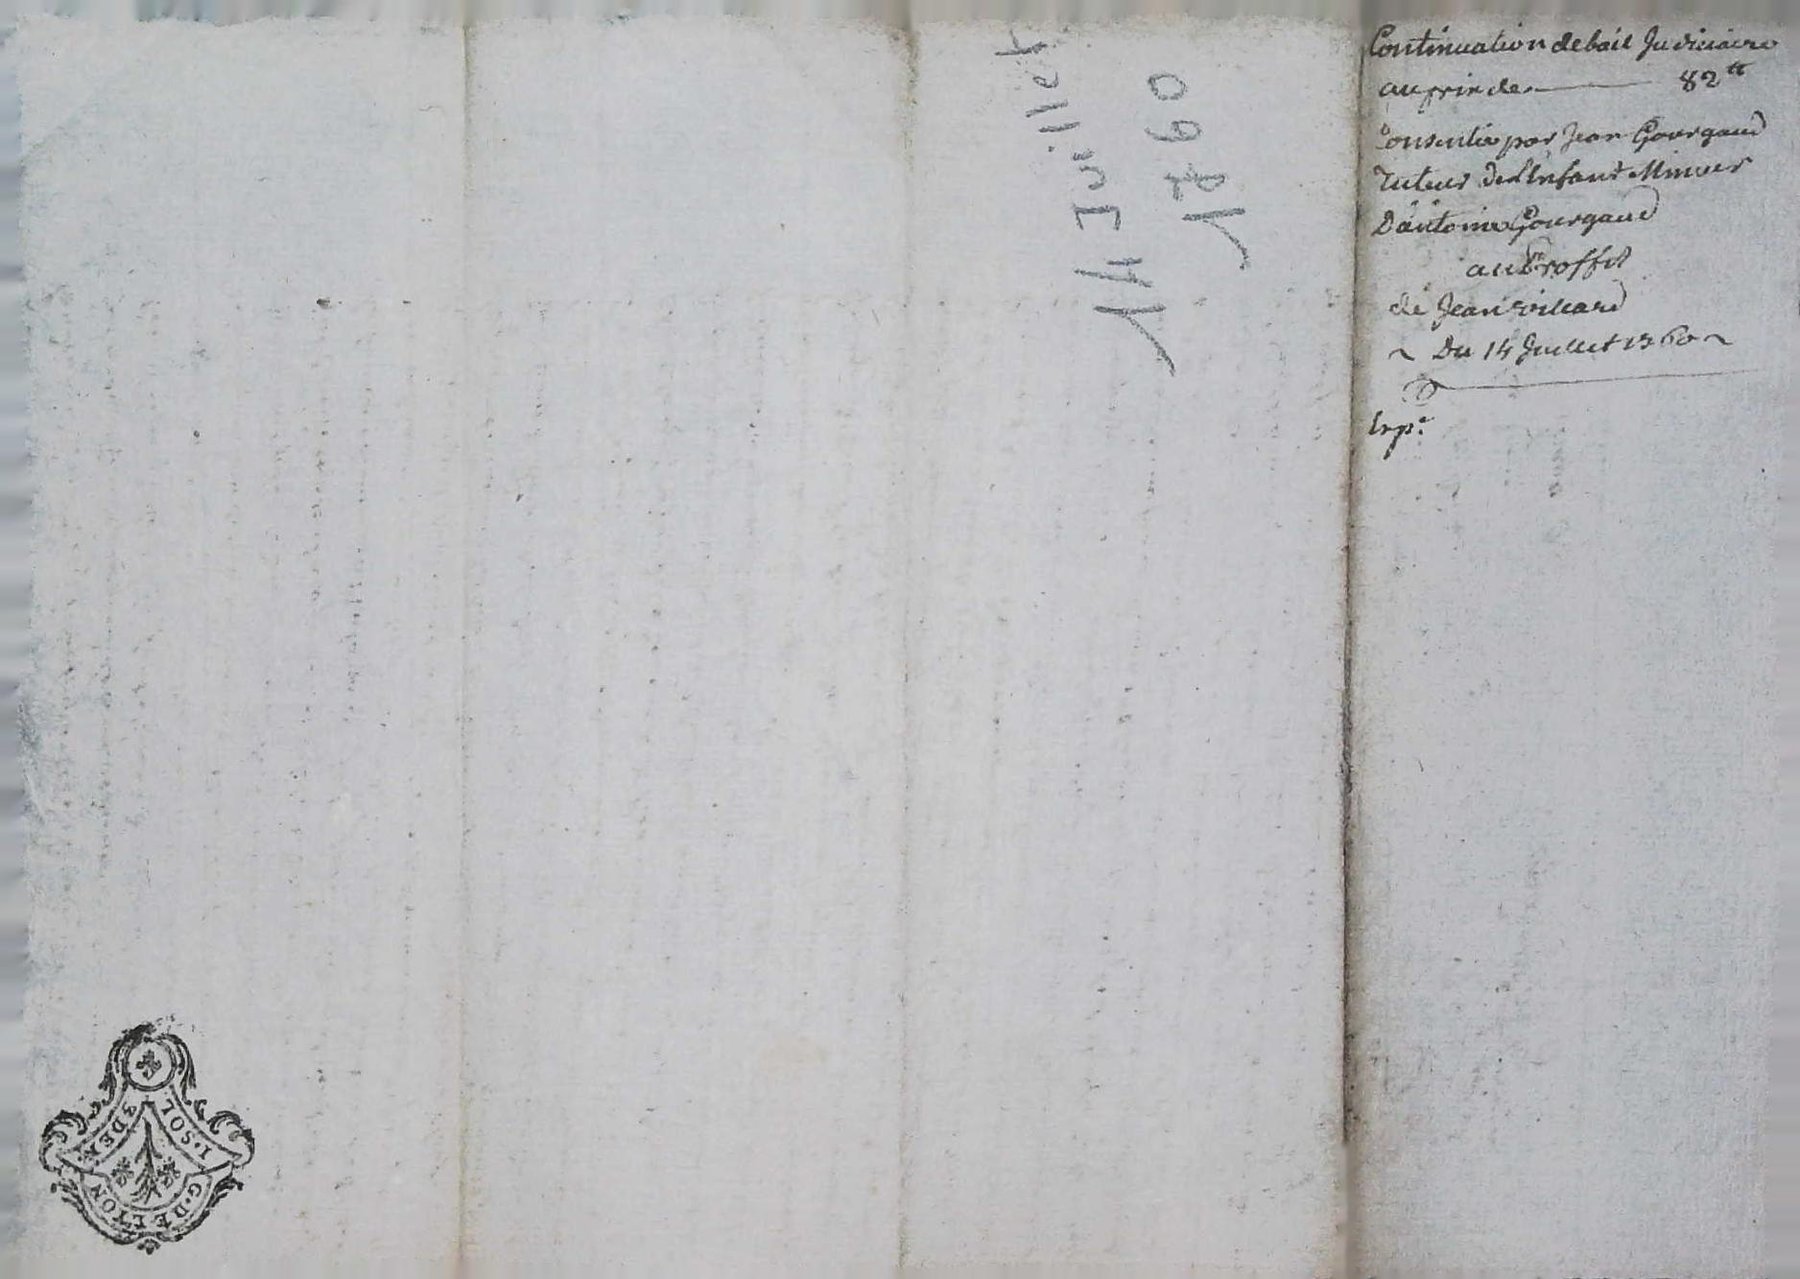 Continuation de bail Judiciaire
au prix de 82 tt
Consentie par Jean Gourgaud
Tuteur de L'Enfant Mineur
D'antoine Gourgaud
au Proffit
de Jean
Du 14 Juillet 1760
Exp.e
14 Juillet
1760
G. DE LYON
1. SOL
3 DEN